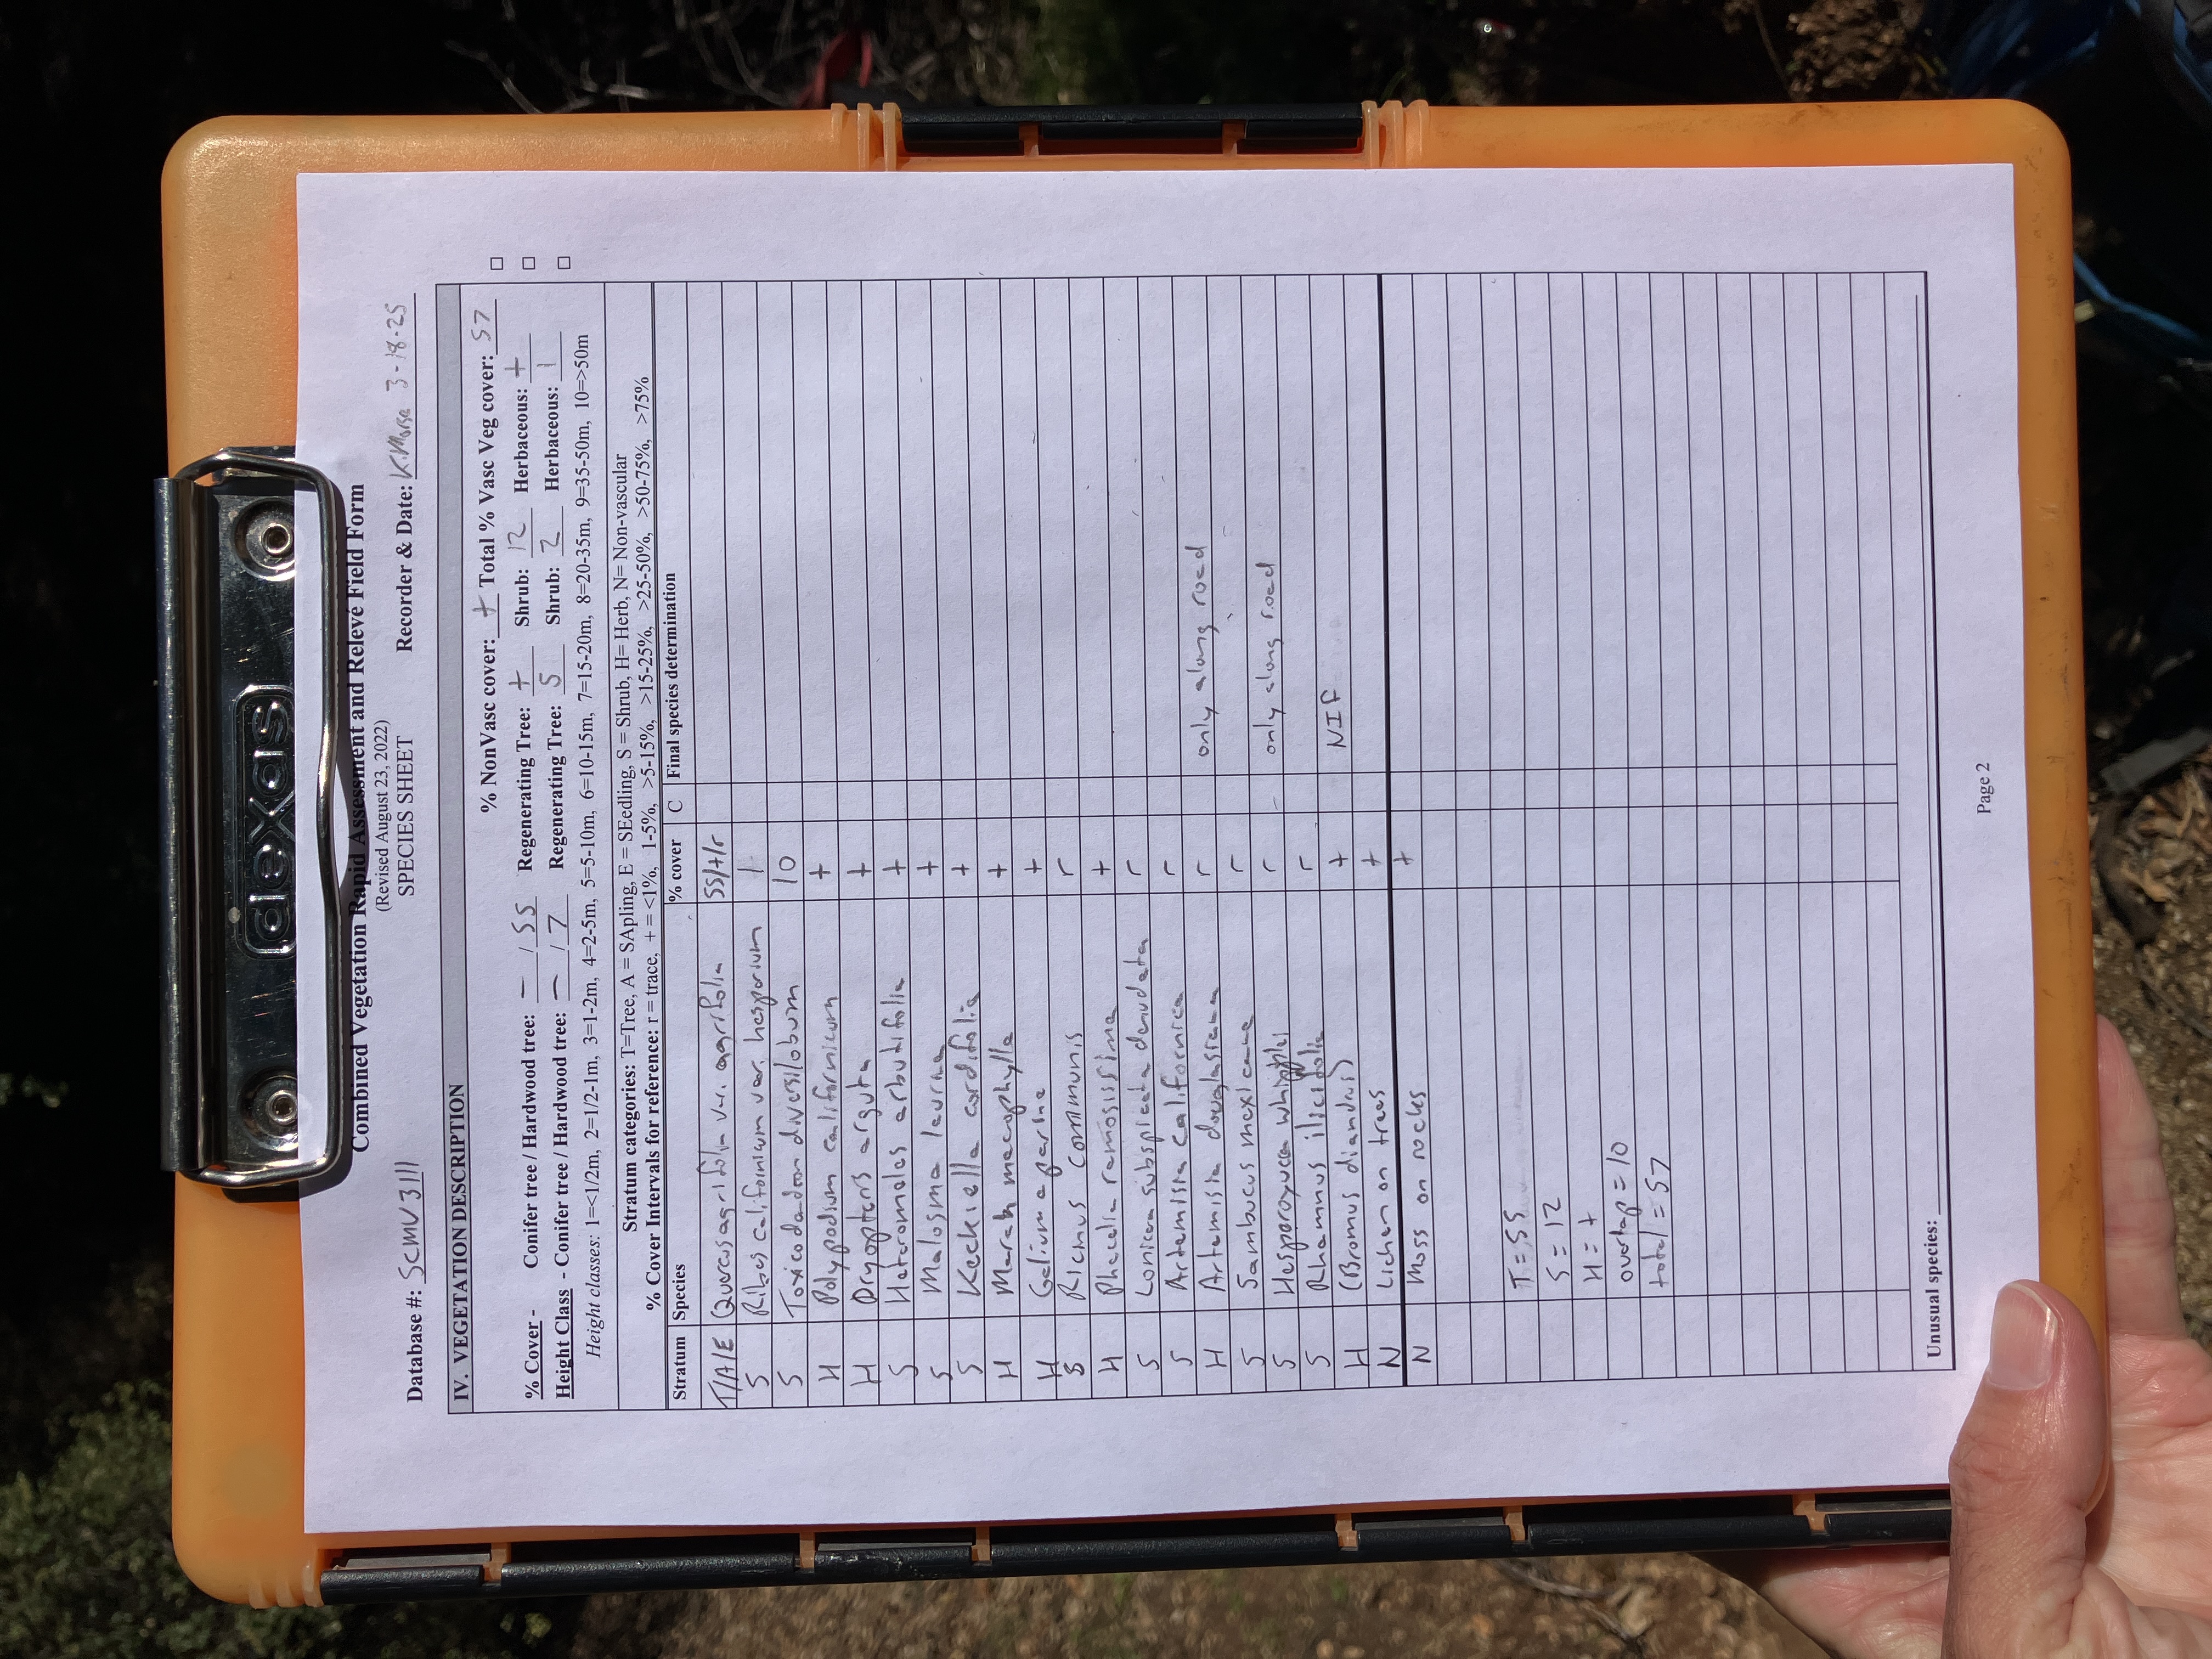 dexas
Combined Vegetation Rapid Assessment and Relevé Field Form
(Revised August 23, 2022)
SPECIES SHEET
Database #: SCMV3111 Recorder & Date: K.Morse 3-18-25
IV. VEGETATION DESCRIPTION
% NonVasc cover: + Total % Vasc Veg cover: 57 □
% Cover - Conifer tree / Hardwood tree: — / 55 Regenerating Tree: + Shrub: 12 Herbaceous: + □
Height Class - Conifer tree / Hardwood tree: — / 7 Regenerating Tree: 5 Shrub: 2 Herbaceous: 1 □
Height classes: 1=<1/2m, 2=1/2-1m, 3=1-2m, 4=2-5m, 5=5-10m, 6=10-15m, 7=15-20m, 8=20-35m, 9=35-50m, 10=>50m
Stratum categories: T=Tree, A = SApling, E = SEedling, S = Shrub, H= Herb, N= Non-vascular
% Cover Intervals for reference: r = trace, + = <1%, 1-5%, >5-15%, >15-25%, >25-50%, >50-75%, >75%
Stratum Species % cover C Final species determination
T/A/E Quercus agrifolia var. agrifolia 55/+/r
S Ribes californicum var. hesperium 1
S Toxicodendron diversilobum 10
H Polypodium californicum +
H Dryopteris arguta +
S Heteromeles arbutifolia +
S Malosma laurina +
S Keckiella cordifolia +
H Marah macrophylla +
H Galium aparine +
S Ricinus communis r
H Phacelia ramosissima +
S Lonicera subspicata denudata r
S Artemisia californica r
H Artemisia douglasiana r only along road
S Sambucus mexicana r
S Hesperoyucca whipplei r only along road
S Rhamnus ilicifolia r
H (Bromus diandrus) + NIF
N Lichen on trees +
N Moss on rocks +
T = 55
S = 12
H = +
overlap = 10
total = 57
Unusual species:
Page 2